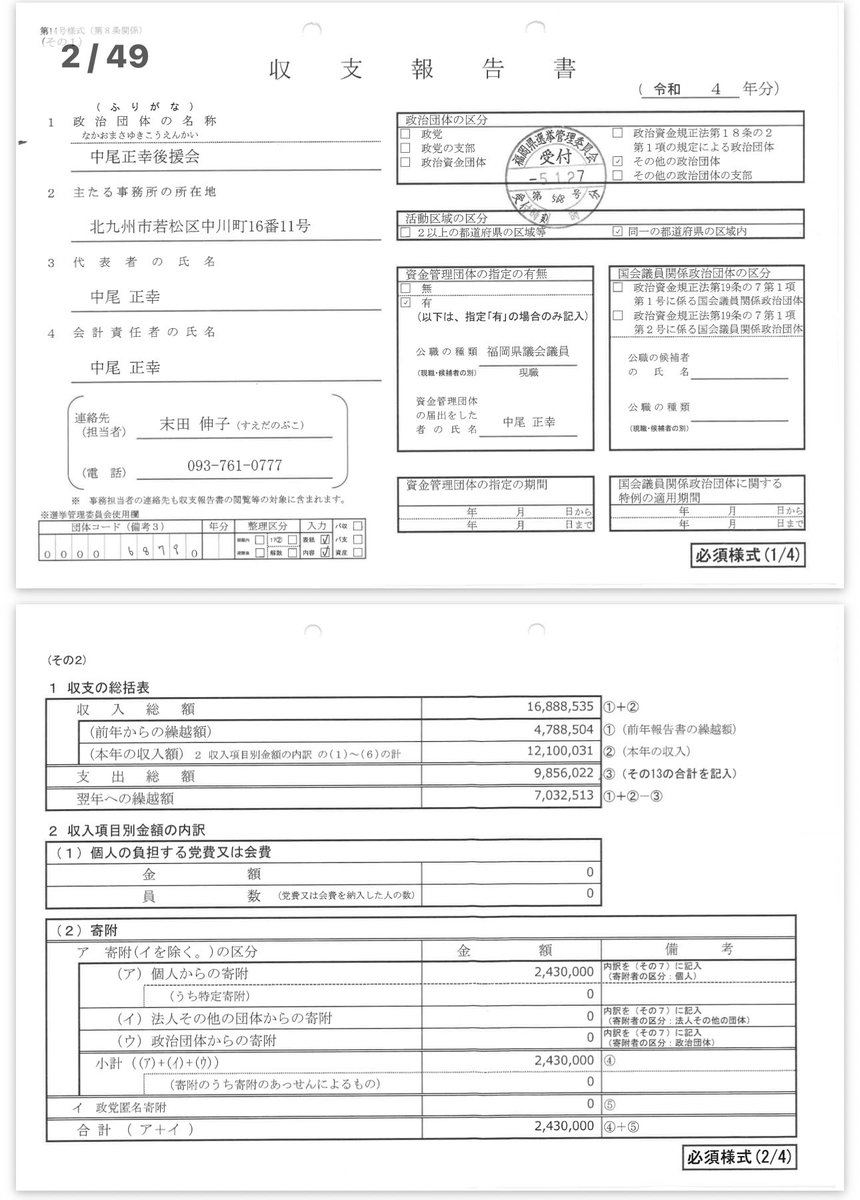 第14号様式（第８条関係）
（その１）
2 / 49
収支報告書
（令和 4 年分）
（ふりがな）
1 政治団体の名称
なかおまさゆきこうえんかい
中尾正幸後援会
2 主たる事務所の所在地
北九州市若松区中川町16番11号
3 代表者の氏名
中尾 正幸
4 会計責任者の氏名
中尾 正幸
連絡先
（担当者）
末田 伸子（すえだのぶこ）
（電話）
093-761-0777
※ 事務担当者の連絡先も収支報告書の閲覧等の対象に含まれます。
※選挙管理委員会使用欄
団体コード（備考３） 年分 整理区分 入力 バ収
17② 表紙 バ支
0 0 0 0 6 8 7 9 0 解散 内容 資産
政治団体の区分
政党
政党の支部
政治資金団体
政治資金規正法第１８条の２
第１項の規定による政治団体
その他の政治団体
その他の政治団体の支部
福岡県選挙管理委員会
受付
-5.1.27
第 568 号
活動区域の区分
２以上の都道府県の区域等
同一の都道府県の区域内
資金管理団体の指定の有無
無
有
（以下は、指定「有」の場合のみ記入）
公職の種類 福岡県議会議員
（現職・候補者の別） 現職
資金管理団体
の届出をした
者の氏名 中尾 正幸
国会議員関係政治団体の区分
政治資金規正法第19条の７第１項
第１号に係る国会議員関係政治団体
政治資金規正法第19条の７第１項
第２号に係る国会議員関係政治団体
公職の候補者
の氏名
公職の種類
（現職・候補者の別）
資金管理団体の指定の期間
年 月 日から
年 月 日まで
国会議員関係政治団体に関する
特例の適用期間
年 月 日から
年 月 日まで
必須様式(1/4)
（その2）
1 収支の総括表
収入総額 16,888,535 ①＋②
（前年からの繰越額） 4,788,504 ①（前年報告書の繰越額）
（本年の収入額）２ 収入項目別金額の内訳 の（１）～（６）の計 12,100,031 ②（本年の収入）
支出総額 9,856,022 ③（その13の合計を記入）
翌年への繰越額 7,032,513 ①＋②－③
2 収入項目別金額の内訳
（１）個人の負担する党費又は会費
金額 0
員数（党費又は会費を納入した人の数） 0
（２）寄附
ア 寄附（イを除く。）の区分 金額 備考
（ア）個人からの寄附 2,430,000 内訳を（その７）に記入
（寄附者の区分：個人）
（うち特定寄附） 0
（イ）法人その他の団体からの寄附 0 内訳を（その７）に記入
（寄附者の区分：法人その他の団体）
（ウ）政治団体からの寄附 0 内訳を（その７）に記入
（寄附者の区分：政治団体）
小計（（ア）＋（イ）＋（ウ）） 2,430,000 ④
（寄附のうち寄附のあっせんによるもの） 0
イ 政党匿名寄附 0 ⑤
合計（ア＋イ） 2,430,000 ④＋⑤
必須様式(2/4)